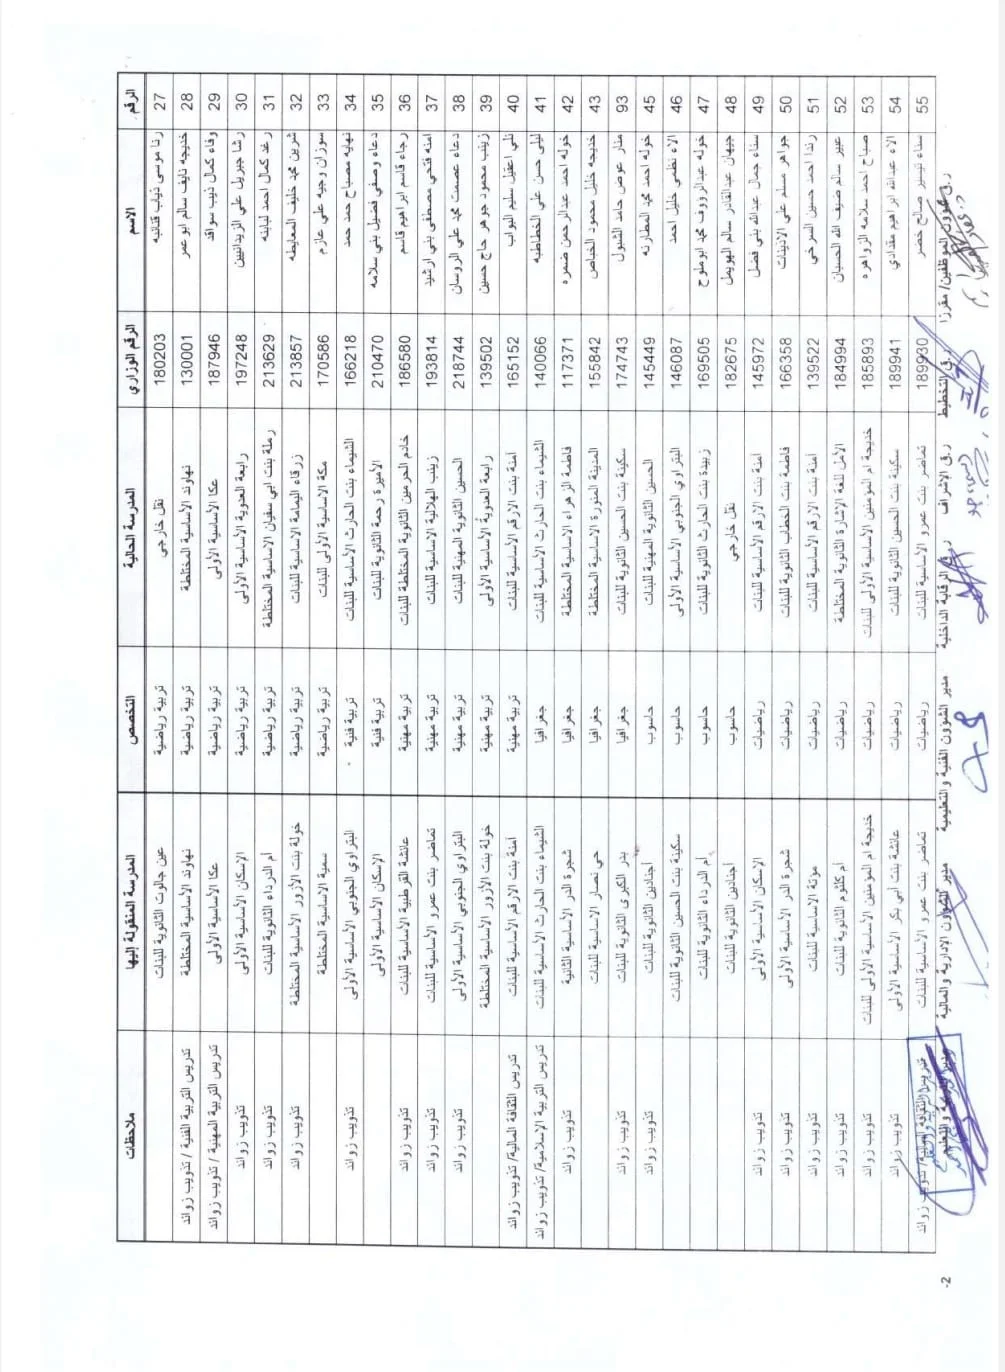 الرقم الاسم الرقم الوزاري المدرسة الحالية التخصص المدرسة المنقولة إليها ملاحظات
27 رنا موسى ذياب قتانيه 180203 نقل خارجي تربية رياضية عين جالوت الثانوية للبنات
28 خديجه نايف سالم ابو عمر 130001 نهاوند الأساسية المختلطة تربية رياضية نهاوند الأساسية المختلطة تدريس التربية الفنية / تذويب زوائد
29 وفاء كمال ذيب سوافد 187946 عكا الأساسية الأولى تربية رياضية عكا الأساسية الأولى تدريس التربية المهنية / تذويب زوائد
30 رشا جبريل علي الزيدانيين 197248 رابعة العدوية الأساسية الأولى تربية رياضية الإسكان الأساسية الأولى تذويب زوائد
31 رغد كمال احمد لبابنه 213629 رملة بنت ابي سفيان الاساسية المختلطة تربية رياضية أم الدرداء الثانوية للبنات تذويب زوائد
32 شرين محمد خليف المعايطه 213857 زرقاء اليمامة الاساسية للبنات تربية رياضية خولة بنت الأزور الأساسية المختلطة تذويب زوائد
33 سوزان وجيه علي عازم 170586 مكة الاساسية الاولى للبنات تربية رياضية سمية الاساسية المختلطة
34 نهايه مصباح حمد حمد 166218 الشيماء بنت الحارث الأساسية للبنات تربية فنية البتراوي الجنوبي الأساسية الأولى تذويب زوائد
35 دعاء وصفي فضيل بني سلامه 210470 الأميرة رحمة الثانوية للبنات تربية فنية الإسكان الأساسية الأولى
36 رجاء قاسم ابراهيم قاسم 186580 خادم الحرمين الثانوية المختلطة للبنات تربية مهنية عائشة القرطبية الأساسية للبنات تذويب زوائد
37 امنه فتحي مصطفى بني ارشيد 193814 زينب الهلالية الاساسية للبنات تربية مهنية تماضر بنت عمرو الأساسية للبنات تذويب زوائد
38 دعاء عصمت محمد علي الروسان 218744 الحسين الثانوية المهنية للبنات تربية مهنية البتراوي الجنوبي الأساسية الأولى تذويب زوائد
39 زينب محمود جوهر حاج حسين 139502 رابعة العدوية الأساسية الأولى تربية مهنية خولة بنت الأزور الأساسية المختلطة
40 اعقيل سليم البواب 165152 آمنة بنت الارقم الأساسية للبنات تربية مهنية آمنة بنت الارقم الأساسية للبنات تدريس الثقافة المالية/ تذويب زوائد
41 ليلى حسن علي الخطاطبه 140066 الشيماء بنت الحارث الأساسية للبنات جغرافيا الشيماء بنت الحارث الأساسية للبنات تدريس التربية الإسلامية/ تذويب زوائد
42 خوله احمد عبدالرحمن ضمره 117371 فاطمة الزهراء الاساسية المختلطة جغرافيا شجرة الدر الأساسية الثانية تذويب زوائد
43 خديجه خليل محمود الخباص 155842 المدينة المنورة الاساسية المختلطة جغرافيا حي نصار الاساسية للبنات
93 منار عوض حامد الشبول 174743 سكينة بنت الحسين الثانوية للبنات جغرافيا بدر الكبرى الثانوية للبنات تذويب زوائد
45 خوله احمد محمد المطارنه 145449 الحسين الثانوية المهنية للبنات حاسوب أجنادين الثانوية للبنات تذويب زوائد
46 الاء نظمي خليل احمد 146087 البتراوي الجنوبي الأساسية الأولى حاسوب سكينة بنت الحسين الثانوية للبنات
47 خوله عبدالرؤوف محمد ابو ملوح 169505 زبيدة بنت الحارث الثانوية للبنات حاسوب أم الدرداء الثانوية للبنات
48 جيهان عبدالقادر سالم الهويمل 182675 نقل خارجي حاسوب أجنادين الثانوية للبنات
49 سناء جمال عبدالله بني فضل 145972 آمنة بنت الارقم الأساسية للبنات رياضيات الإسكان الأساسية الأولى تذويب زوائد
50 جواهر مسلم علي الاذينات 166358 فاطمة بنت الخطاب الثانوية للبنات رياضيات شجرة الدر الأساسية الأولى تذويب زوائد
51 رندا احمد حسين السرخي 139522 آمنة بنت الارقم الأساسية للبنات رياضيات مؤتة الاساسية للبنات تذويب زوائد
52 عبير سالم ضيف الله الحسبان 184994 الأمل للغة الإشارة الثانوية المختلطة رياضيات أم كلثوم الثانوية للبنات تذويب زوائد
53 صباح احمد سلامه الزواهره 185893 خديجة ام المؤمنين الأساسية الأولى للبنات رياضيات خديجة ام المؤمنين الأساسية الأولى للبنات تذويب زوائد
54 الاء عبدالله ابراهيم مقدادي 189941 سكينة بنت الحسين الثانوية للبنات رياضيات عائشة بنت أبي بكر الأساسية الأولى تذويب زوائد
55 سناء تيسير صالح خضر 189930 تماضر بنت عمرو الأساسية للبنات رياضيات تماضر بنت عمرو الأساسية للبنات تدريس الثقافة المالية/ تذويب زوائد
ر.ق شؤون الموظفين/ مفرزا ر.ق التخطيط ر.ق الاشراف ر.ق الرقابة الداخلية مدير الشؤون الفنية والتعليمية مدير الشؤون الإدارية والمالية مدير التربية والتعليم
2-